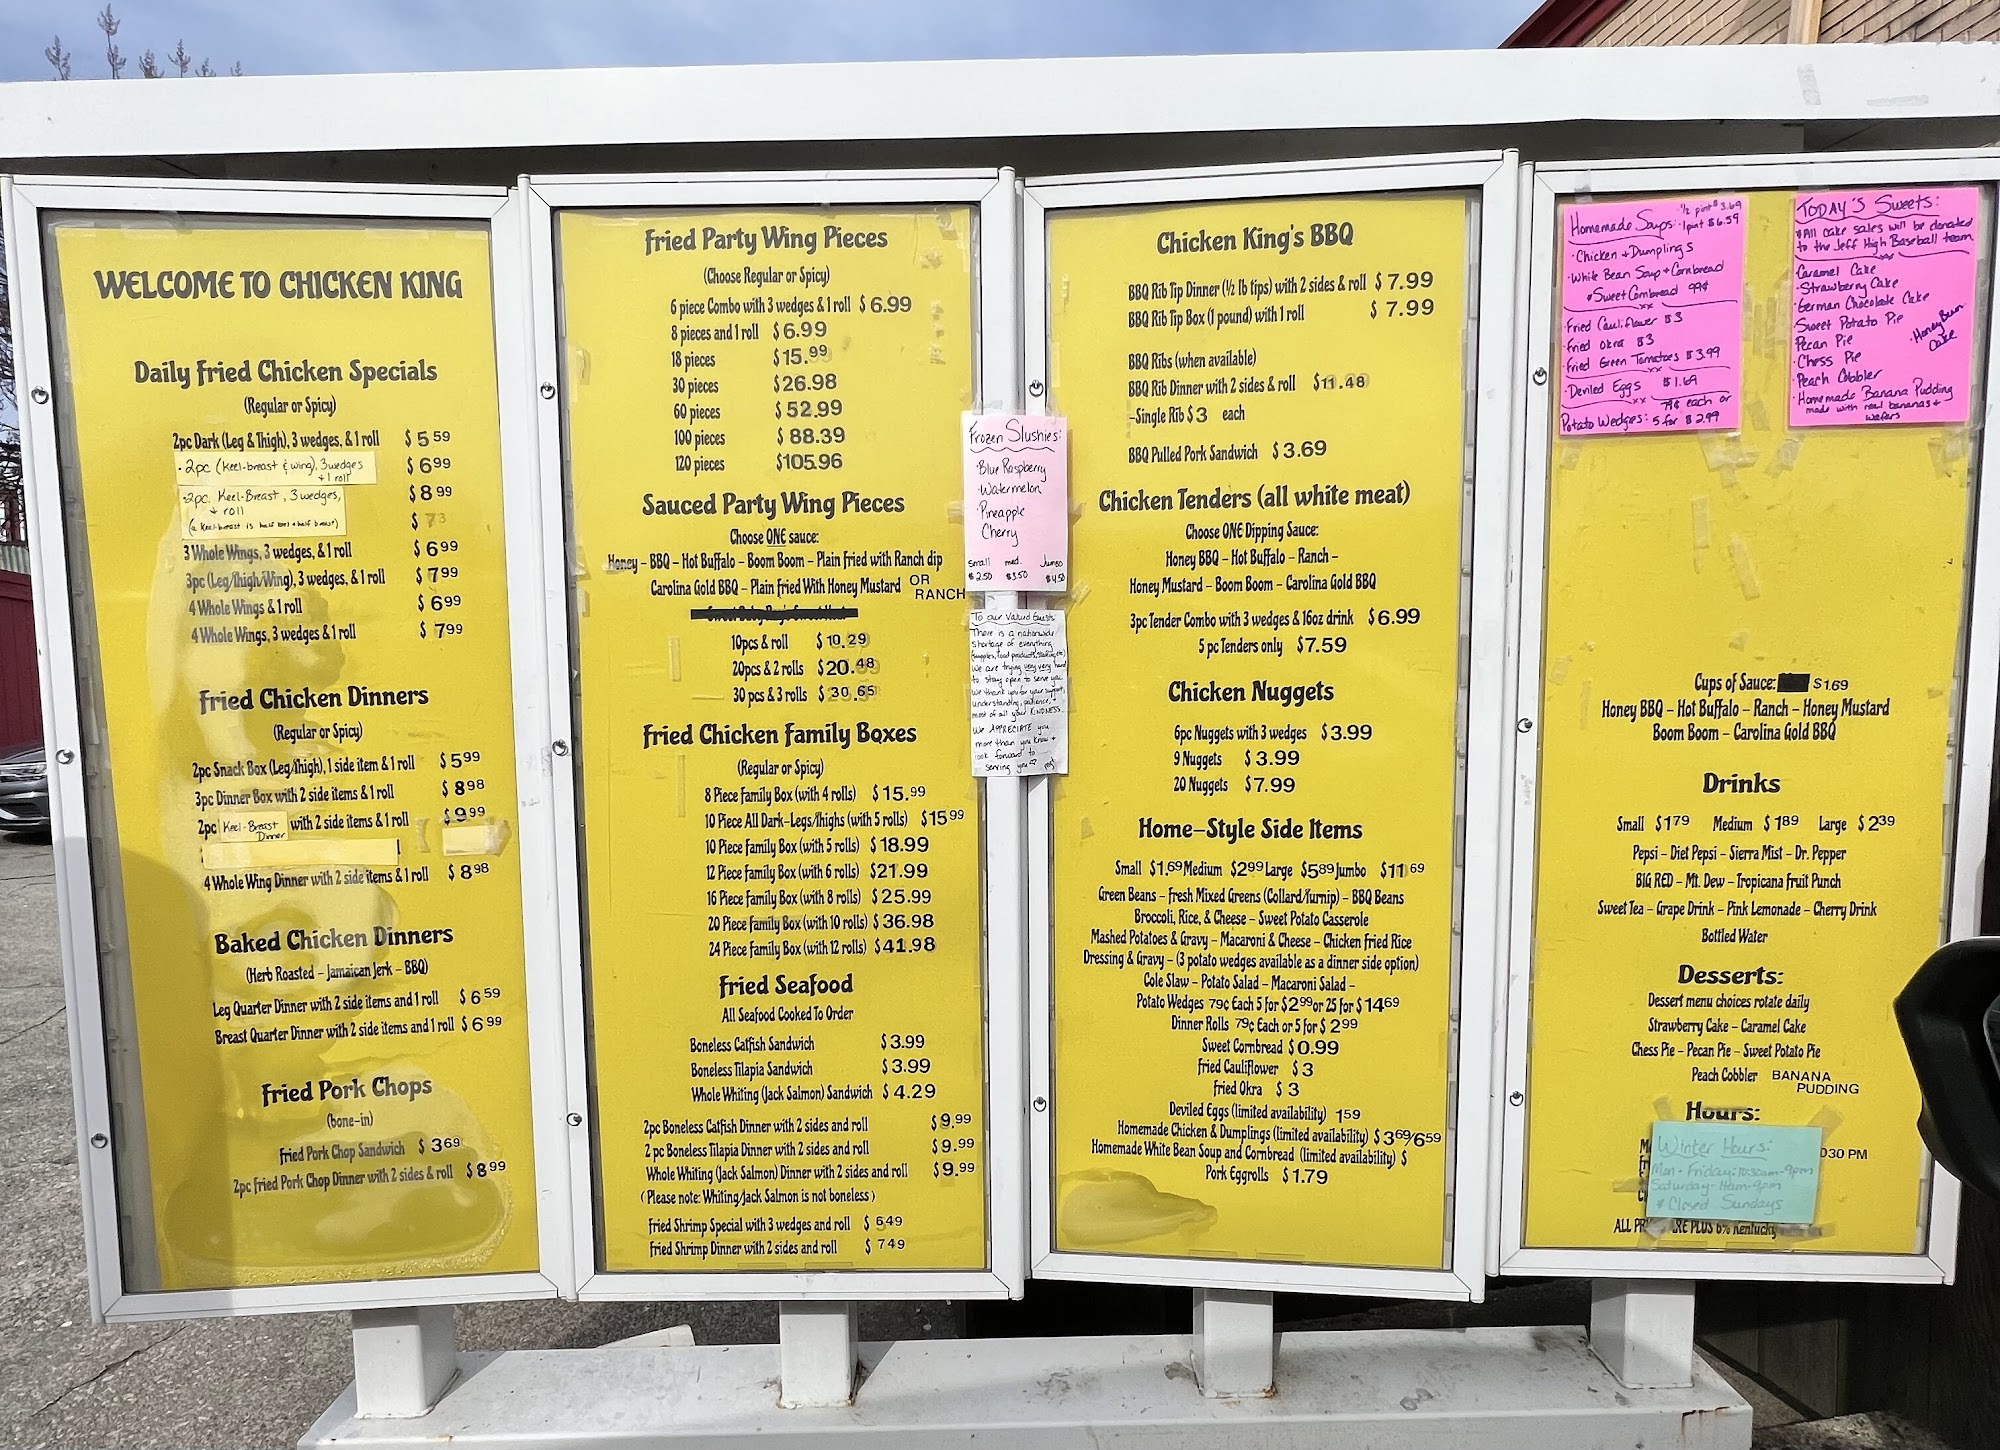 WELCOME TO CHICKEN KING
Daily Fried Chicken Specials
(Regular or Spicy)
2pc Dark (Leg & Thigh), 3 wedges, & 1 roll $5 59
• 2pc (Keel-breast & wing), 3 wedges $6 99
+ 1 roll
2pc. Keel-Breast, 3 wedges, $8 99
+ roll
(a Keel-breast is half keel + half breast) $ 73
3 Whole Wings, 3 wedges, & 1 roll $6 99
3pc (Leg/Thigh/Wing), 3 wedges, & 1 roll $7 99
4 Whole Wings & 1 roll $6 99
4 Whole Wings, 3 wedges & 1 roll $ 7 99
Fried Chicken Dinners
(Regular or Spicy)
2pc Snack Box (Leg/Thigh), 1 side item & 1 roll $5 99
3pc Dinner Box with 2 side items & 1 roll $8 98
2pc Keel-Breast with 2 side items & 1 roll $9 99
Dinner
4 Whole Wing Dinner with 2 side items & 1 roll $8 98
Baked Chicken Dinners
(Herb Roasted – Jamaican Jerk – BBQ)
Leg Quarter Dinner with 2 side items and 1 roll $6 59
Breast Quarter Dinner with 2 side items and 1 roll $6 99
Fried Pork Chops
(bone-in)
Fried Pork Chop Sandwich $3 69
2pc Fried Pork Chop Dinner with 2 sides & roll $8 99
Fried Party Wing Pieces
(Choose Regular or Spicy)
6 piece Combo with 3 wedges & 1 roll $6.99
8 pieces and 1 roll $6.99
18 pieces $15.99
30 pieces $26.98
60 pieces $52.99
100 pieces $88.39
120 pieces $105.96
Sauced Party Wing Pieces
Choose ONE sauce:
Honey – BBQ – Hot Buffalo – Boom Boom – Plain fried with Ranch dip
Carolina Gold BBQ – Plain fried With Honey Mustard OR
RANCH
10pcs & roll $10.29
20pcs & 2 rolls $20.48
30 pcs & 3 rolls $30.65
Fried Chicken Family Boxes
(Regular or Spicy)
8 Piece Family Box (with 4 rolls) $15.99
10 Piece All Dark-Legs/Thighs (with 5 rolls) $15 99
10 Piece Family Box (with 5 rolls) $18.99
12 Piece Family Box (with 6 rolls) $21.99
16 Piece Family Box (with 8 rolls) $25.99
20 Piece Family Box (with 10 rolls) $36.98
24 Piece Family Box (with 12 rolls) $41.98
Fried Seafood
All Seafood Cooked To Order
Boneless Catfish Sandwich $3.99
Boneless Tilapia Sandwich $3.99
Whole Whiting (Jack Salmon) Sandwich $4.29
2pc Boneless Catfish Dinner with 2 sides and roll $9.99
2 pc Boneless Tilapia Dinner with 2 sides and roll $9.99
Whole Whiting (Jack Salmon) Dinner with 2 sides and roll $9.99
(Please note: Whiting/Jack Salmon is not boneless)
Fried Shrimp Special with 3 wedges and roll $ 6 49
Fried Shrimp Dinner with 2 sides and roll $ 7 49
Frozen Slushies:
• Blue Raspberry
• Watermelon
• Pineapple
Cherry
Small med. Jumbo
$2.50 $3.50 $4.50
To our Valued Guests:
There is a nationwide
shortage of everything
(supplies, food products, staffing, etc)
We are trying very very hard
to stay open to serve you.
We thank you for your support,
understanding, patience, +
most of all your KINDNESS.
We APPRECIATE you
more than you know +
look forward to
serving you
Chicken King's BBQ
BBQ Rib Tip Dinner (½ lb tips) with 2 sides & roll $7.99
BBQ Rib Tip Box (1 pound) with 1 roll $7.99
BBQ Ribs (when available)
BBQ Rib Dinner with 2 sides & roll $11.48
–Single Rib $3 each
BBQ Pulled Pork Sandwich $3.69
Chicken Tenders (all white meat)
Choose ONE Dipping Sauce:
Honey BBQ – Hot Buffalo – Ranch –
Honey Mustard – Boom Boom – Carolina Gold BBQ
3pc Tender Combo with 3 wedges & 16oz drink $6.99
5 pc Tenders only $7.59
Chicken Nuggets
6pc Nuggets with 3 wedges $3.99
9 Nuggets $3.99
20 Nuggets $7.99
Home-Style Side Items
Small $1.69 Medium $2 99 Large $5 89 Jumbo $11 69
Green Beans – Fresh Mixed Greens (Collard/Turnip) – BBQ Beans
Broccoli, Rice, & Cheese – Sweet Potato Casserole
Mashed Potatoes & Gravy – Macaroni & Cheese – Chicken Fried Rice
Dressing & Gravy – (3 potato wedges available as a dinner side option)
Cole Slaw – Potato Salad – Macaroni Salad –
Potato Wedges 79¢ Each 5 for $2 99 or 25 for $14 69
Dinner Rolls 79¢ Each or 5 for $2 99
Sweet Cornbread $0.99
Fried Cauliflower $3
Fried Okra $3
Deviled Eggs (limited availability) 1 59
Homemade Chicken & Dumplings (limited availability) $3 69/6 59
Homemade White Bean Soup and Cornbread (limited availability) $
Pork Eggrolls $1.79
Homemade Soups: ½ pint $3.69
1 pint $6.59
• Chicken + Dumplings
• White Bean Soup + Cornbread
*Sweet Cornbread 99¢
• Fried Cauliflower $3
• Fried Okra $3
• Fried Green Tomatoes $3.99
• Deviled Eggs $1.69
79¢ each or
Potato Wedges: 5 for $2.99
TODAY'S Sweets:
*All cake sales will be donated
to the Jeff High Baseball team
Caramel Cake
• Strawberry Cake
• German Chocolate Cake
• Sweet Potato Pie
• Pecan Pie
• Honey Bun
Cake
• Chess Pie
• Peach Cobbler
• Homemade Banana Pudding
made with real bananas +
wafers
Cups of Sauce: $1 69
Honey BBQ – Hot Buffalo – Ranch – Honey Mustard
Boom Boom – Carolina Gold BBQ
Drinks
Small $1 79 Medium $1 89 Large $2 39
Pepsi – Diet Pepsi – Sierra Mist – Dr. Pepper
BIG RED – Mt. Dew – Tropicana Fruit Punch
Sweet Tea – Grape Drink – Pink Lemonade – Cherry Drink
Bottled Water
Desserts:
Dessert menu choices rotate daily
Strawberry Cake – Caramel Cake
Chess Pie – Pecan Pie – Sweet Potato Pie
Peach Cobbler BANANA
PUDDING
Hours:
Winter Hours:
Mon - Friday: 10:30am-9pm
Saturday - 11am-9pm
* Closed Sundays
030 PM
ALL PR RE PLUS 6% Kentucky